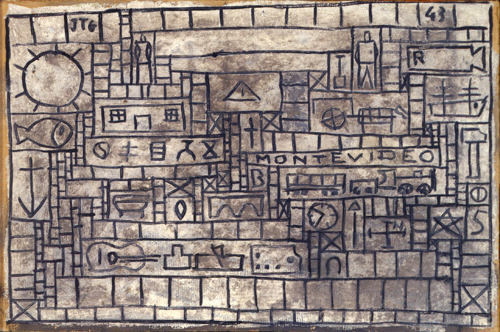 JTG 43
R
MONTEVIDEO
B
S